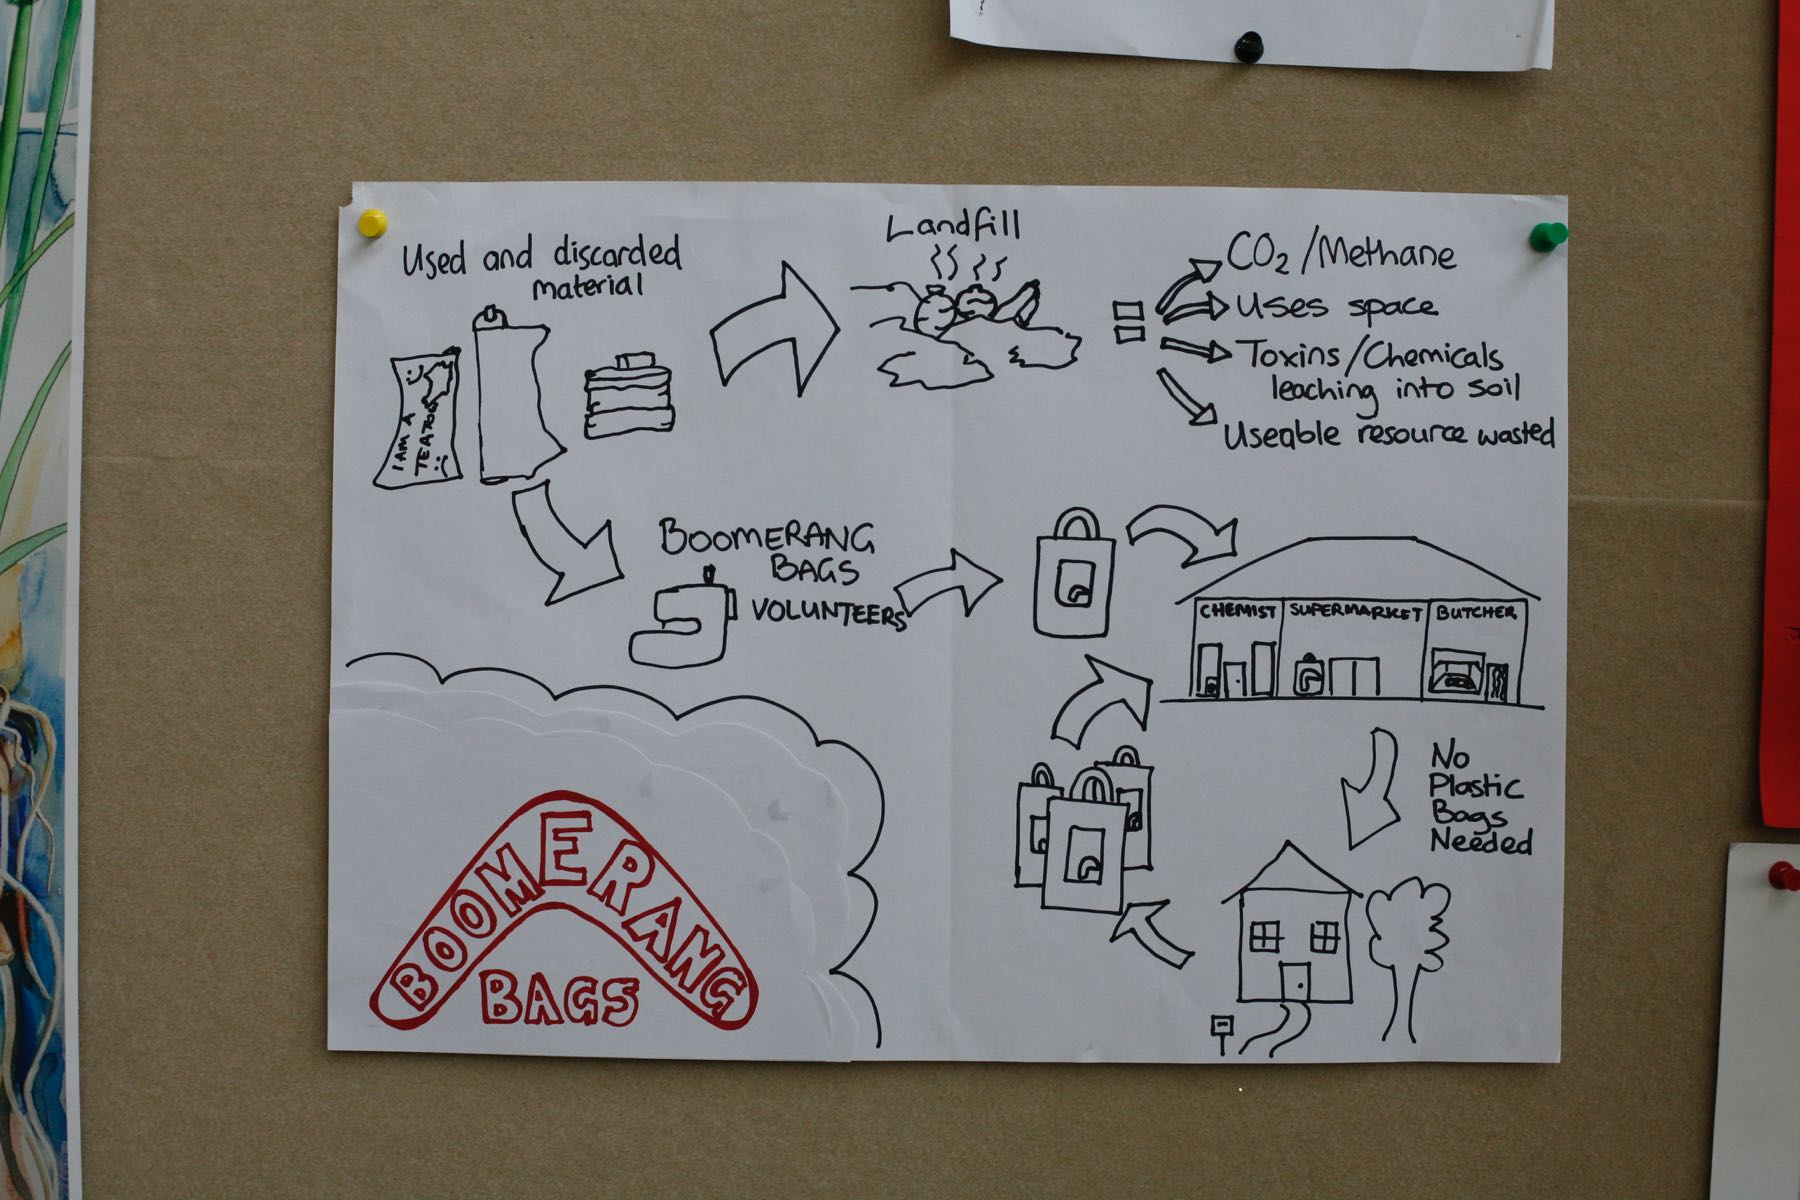 Used and discarded
material
I AM A
TEATOWEL
Landfill
CO₂/Methane
Uses space
Toxins/Chemicals
leaching into soil
Useable resource wasted
BOOMERANG
BAGS
VOLUNTEERS
CHEMIST
SUPERMARKET
BUTCHER
No
Plastic
Bags
Needed
BOOMERANG
BAGS